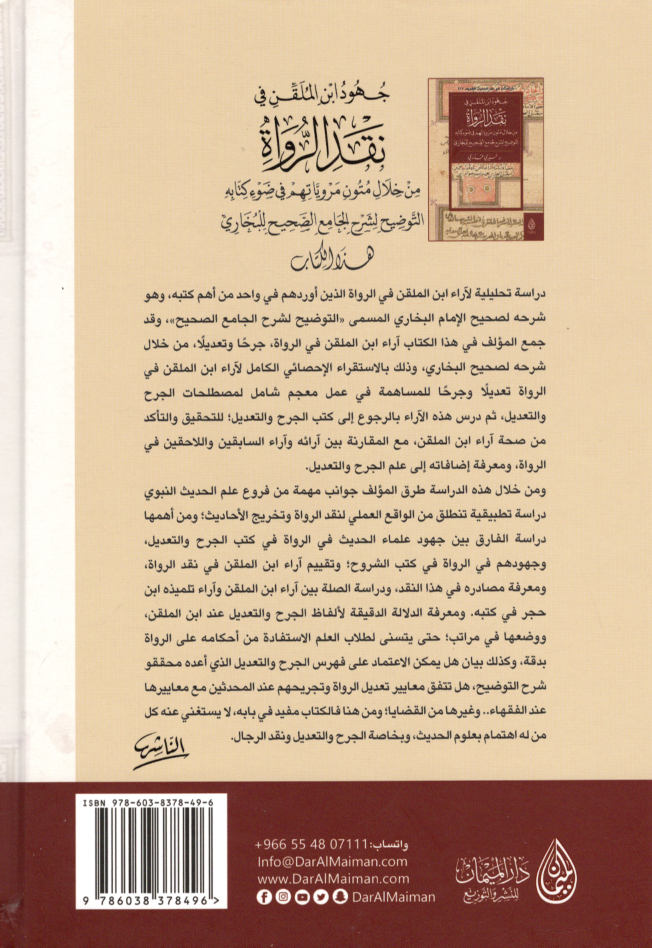 جُهُودُ ابْنِ المُلَقِّنِ فِي
نَقْدِ الرُّوَاةِ
مِنْ خِلَالِ مُتُونِ مَرْوِيَّاتِهِمْ فِي ضَوْءِ كِتَابِهِ
التَّوْضِيحِ لِشَرْحِ الجَامِعِ الصَّحِيحِ لِلْبُخَارِيِّ
هَذَا الكِتَابُ
جهود ابن الملقن في
نقد الرواة
من خلال متون مروياتهم في ضوء كتابه
التوضيح لشرح الجامع الصحيح للبخاري
دراسة تحليلية لآراء ابن الملقن في الرواة الذين أوردهم في واحد من أهم كتبه، وهو
شرحه لصحيح الإمام البخاري المسمى «التوضيح لشرح الجامع الصحيح»، وقد
جمع المؤلف في هذا الكتاب آراء ابن الملقن في الرواة، جرحًا وتعديلًا، من خلال
شرحه لصحيح البخاري، وذلك بالاستقراء الإحصائي الكامل لآراء ابن الملقن في
الرواة تعديلًا وجرحًا للمساهمة في عمل معجم شامل لمصطلحات الجرح
والتعديل، ثم درس هذه الآراء بالرجوع إلى كتب الجرح والتعديل؛ للتحقيق والتأكد
من صحة آراء ابن الملقن، مع المقارنة بين آرائه وآراء السابقين واللاحقين في
الرواة، ومعرفة إضافاته إلى علم الجرح والتعديل.
ومن خلال هذه الدراسة طرق المؤلف جوانب مهمة من فروع علم الحديث النبوي
دراسة تطبيقية تنطلق من الواقع العملي لنقد الرواة وتخريج الأحاديث؛ ومن أهمها
دراسة الفارق بين جهود علماء الحديث في الرواة في كتب الجرح والتعديل،
وجهودهم في الرواة في كتب الشروح؛ وتقييم آراء ابن الملقن في نقد الرواة،
ومعرفة مصادره في هذا النقد، ودراسة الصلة بين آراء ابن الملقن وآراء تلميذه ابن
حجر في كتبه. ومعرفة الدلالة الدقيقة لألفاظ الجرح والتعديل عند ابن الملقن،
ووضعها في مراتب؛ حتى يتسنى لطلاب العلم الاستفادة من أحكامه على الرواة
بدقة، وكذلك بيان هل يمكن الاعتماد على فهرس الجرح والتعديل الذي أعده محققو
شرح التوضيح، هل تتفق معايير تعديل الرواة وتجريحهم عند المحدثين مع معاييرها
عند الفقهاء.. وغيرها من القضايا؛ ومن هنا فالكتاب مفيد في بابه، لا يستغني عنه كل
من له اهتمام بعلوم الحديث، وبخاصة الجرح والتعديل ونقد الرجال.
الناشر
ISBN 978-603-8378-49-6
9 786038 378496 >
واتساب: +966 55 48 07111
Info@DarAlMaiman.com
www.DarAlMaiman.com
DarAlMaiman
دار الميمان
للنشر والتوزيع
الميمان